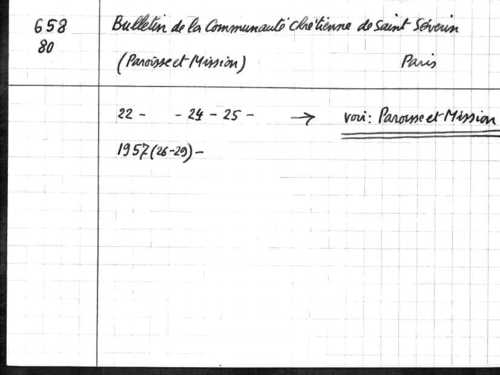 658 Bulletin de la Communauté chrétienne de Saint Séverin
80
(Paroisse et Mission) Paris
22 - - 24 - 25 - → voir: Paroisse et Mission
1957 (26-29) -